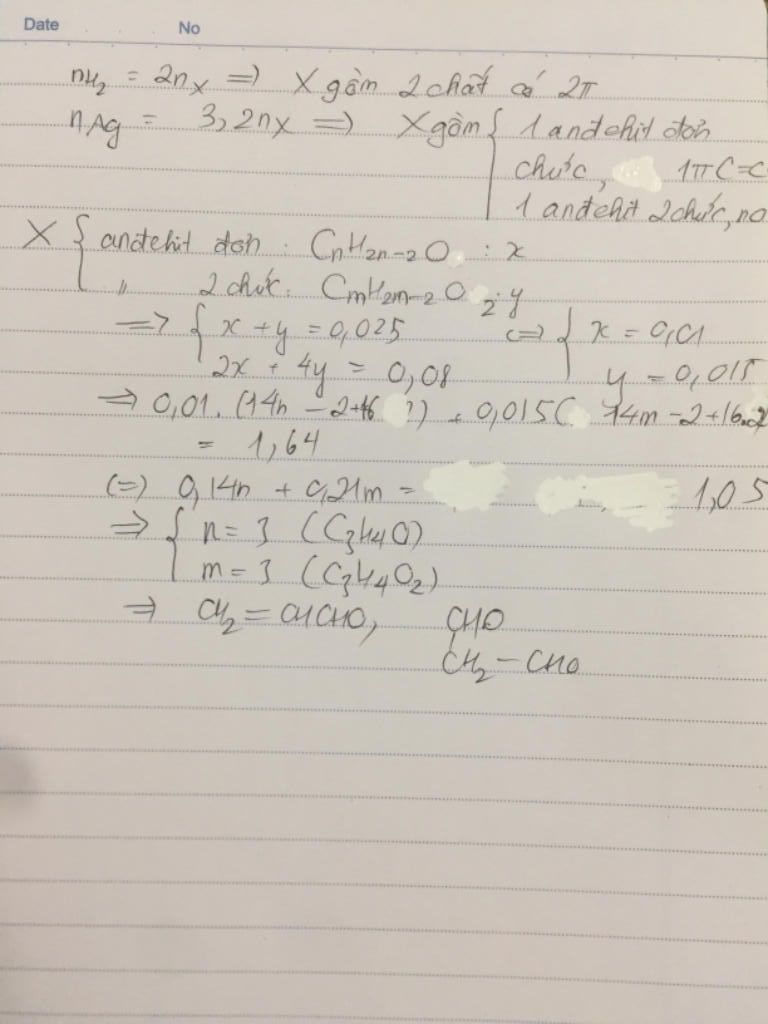 Date No
nH₂ = 2nX => X gồm 2 chất có 2π
nAg = 3,2nX => X gồm { 1 anđehit đơn
chức, 1π C=C
1 anđehit 2 chức, no
X { anđehit đơn : CnH2n-2O : x
" 2 chức : CmH2m-2O2 : y
=> { x + y = 0,025 <=> { x = 0,01
2x + 4y = 0,08 y = 0,015
=> 0,01. (14n - 2+16 ) + 0,015( 14m - 2+16.2
= 1,64
(=) 0,14n + 0,21m = 1,05
=> { n = 3 (C3H4O)
m = 3 (C3H4O2)
=> CH2=CHCHO, CHO
CH2-CHO